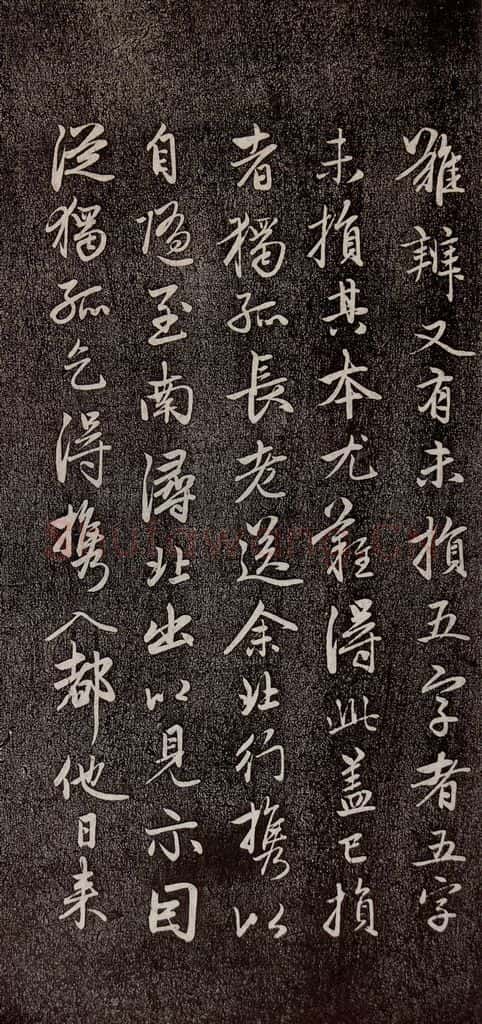 难辨又有未損五字者五字
未損其本尤難得此盖已損
者獨孤長老送余北行攜以
自隨至南潯北出以見示因
從獨孤乞得攜入都他日来